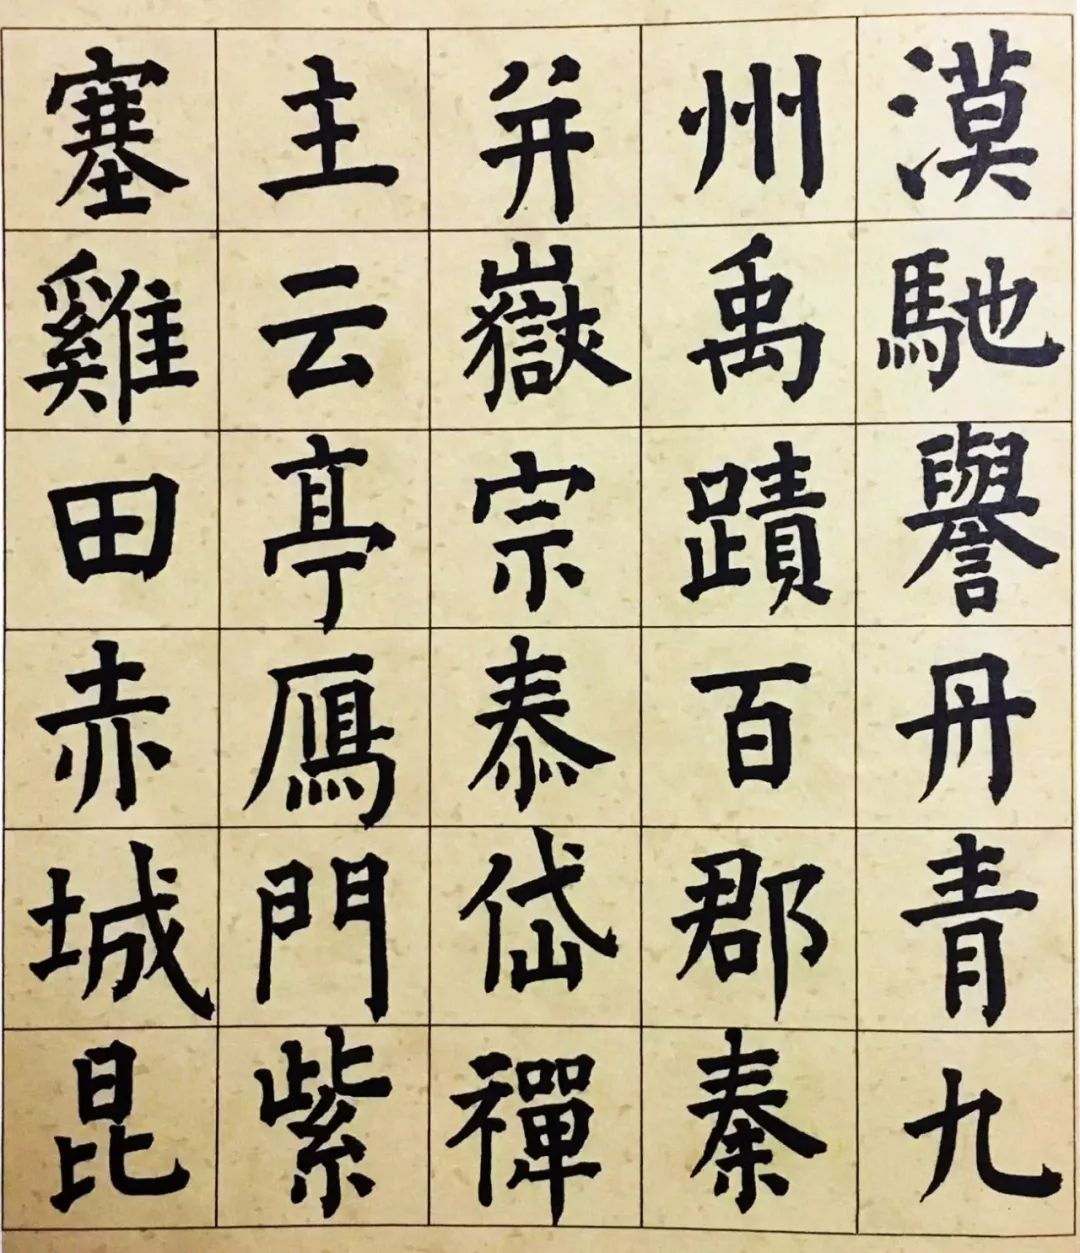 漠馳譽丹青九
州禹蹟百郡秦
并嶽宗泰岱禪
主云亭鴈門紫
塞雞田赤城昆